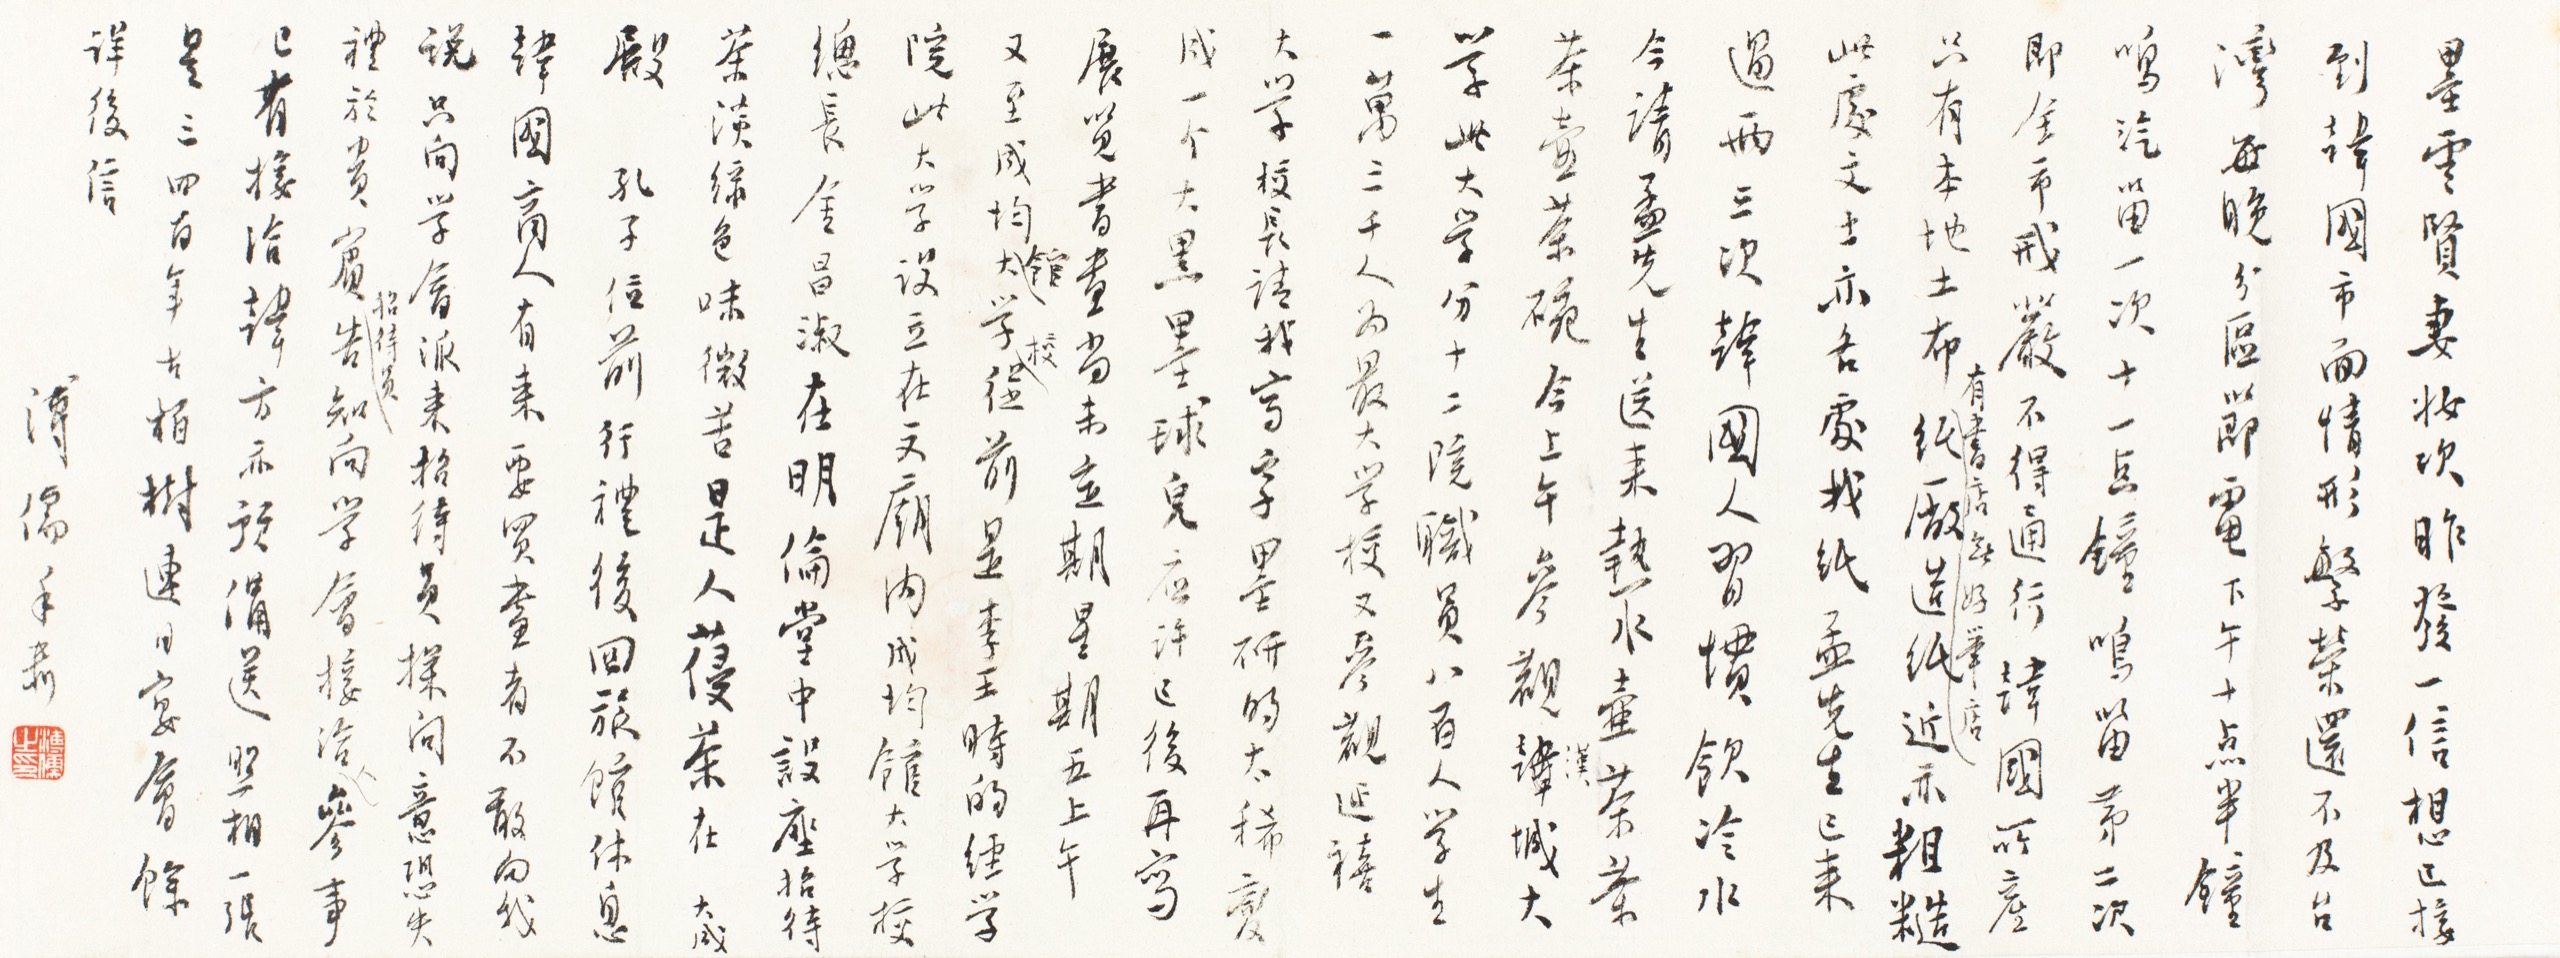 墨雲賢妻妝次昨發一信想已接
到韓國市面情形繁榮還不及台
灣每晚分區節電下午十点半鐘
鳴汽笛一次十一点鐘鳴笛第二次
即全市戒嚴不得通行韓國所產
只有本地土布紙廠造紙近亦粗糙
有書店無好筆店
此處文士亦各處找紙孟先生已来
過兩三次韓國人習慣飲冷水
今請孟先生送来熱水壺茶葉
茶壺茶碗今上午參觀韓城大
漢
学此大学分十二院職員八百人学生
一萬二千人為最大学校又參觀延禧
大学校長請我寫字墨研的太稀變
成一个大黑墨球兒应許已後再寫
展览書畫尚未定期星期五上午
又至成均大学從前是李王時的經学
館 校
院此大学設立在文廟內成均館大学校
總長金昌淑在明倫堂中設座招待
茶淡綠色味微苦是人葠茶在大成
殿 孔子位前行禮後回旅館休息
韓國商人有来要買畫者不敢向我
説只向学會派来招待員探問意恐失
禮於貴賓告知向学會接洽參事
招待員
已有接洽韓方亦預備送照相一張
是三四百年古柏樹連日宴會餘
詳後信
溥儒手書
溥儒之印